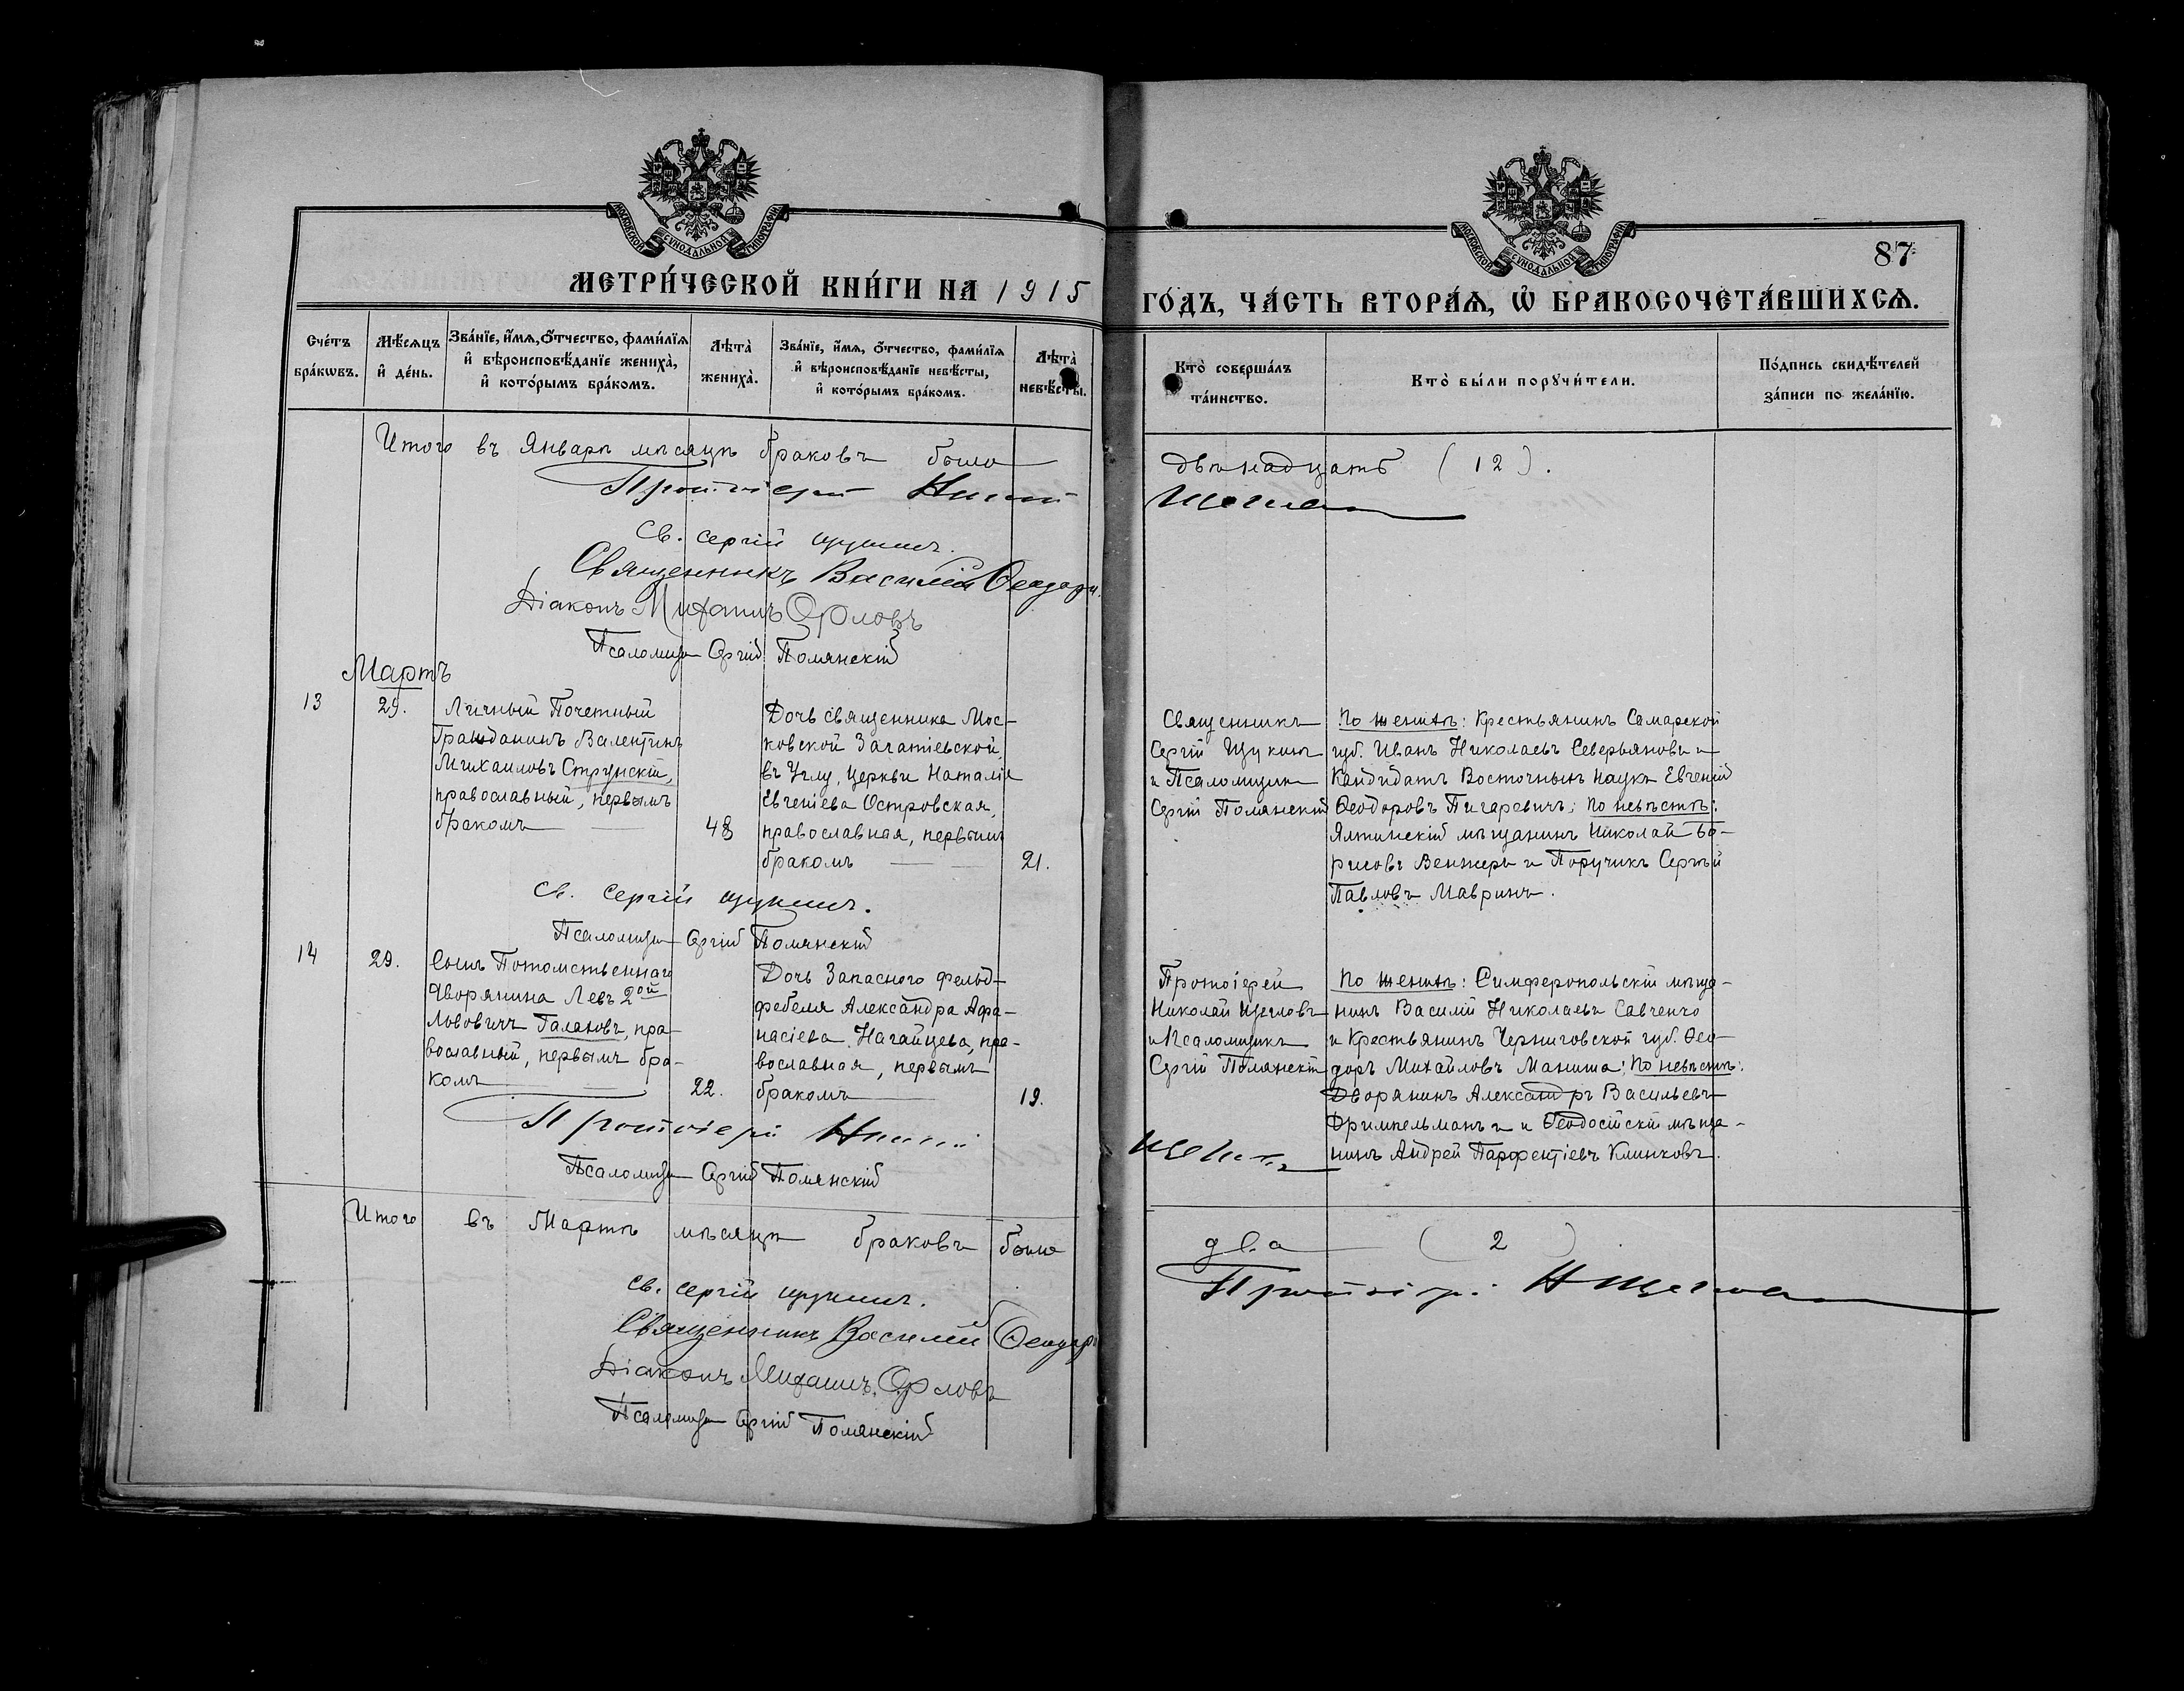 МОСКОВСКОЙ СѴНОДАЛЬНОЙ ТИПОГРАФІИ
МОСКОВСКОЙ СѴНОДАЛЬНОЙ ТИПОГРАФІИ
87
МЕТРИ́ЧЕСКОЙ КНИ́ГИ НА 1915
ГО́ДЪ, ЧА́СТЬ ВТОРА́Ѧ, Ѽ БРАКОСОЧЕТА́ВШИХСѦ.
Сче́тъ бра́кѡвъ.
Мѣ́сѧцъ и҆ де́нь.
Зва́нїе, и҆́мѧ, ѻ҆́тчество, фами́лїѧ и҆ вѣроисповѣ́данїе жениха̀, и҆ кото́рымъ бра́комъ.
Лѣ́та̀ жениха̀.
Зва́нїе, и҆́мѧ, ѻ҆́тчество, фами́лїѧ и҆ вѣроисповѣ́данїе невѣ́сты, и҆ кото́рымъ бра́комъ.
Лѣ́та̀ невѣ́сты.
Кто̀ соверша́лъ та́инство.
Кто̀ бы́ли порꙋчи́тели.
По́дпись свидѣ́телей за́писи по жела́нїю.
Итого въ Январѣ мѣсяцѣ браковъ было
двѣнадцать (12).
Протоіерей
Св. Сергій Щукинъ.
Священникъ Василій
Діаконъ Михаилъ Орловъ
Псаломщ Сергій Полянскій
Мартъ
13
29.
Личный Почетный
Гражданинъ Валентинъ
Михаиловъ Струнскій,
православный, первымъ
бракомъ
48
Дочь священника Мос-
ковской Зачатіевской,
въ Углу, церкви Наталія
Евгеніева Островская,
православная, первымъ
бракомъ
21.
Священникъ
Сергій Щукинъ
и Псаломщикъ
Сергій Полянскій
По женихѣ: Крестьянинъ Самарской
губ. Иванъ Николаевъ Северьяновъ и
Кандидатъ Восточныхъ наукъ Евгеній
Ѳеодоровъ Пигаревичъ; по невѣстѣ:
Ялтинскій мѣщанинъ Николай Бо-
рисовъ Венжеръ и Поручикъ Сергѣй
Павловъ Мавринъ.
Св. Сергій Щукинъ.
Псаломщ Сергій Полянскій
14
29.
Сынъ Потомственнаго
Дворянина Левъ 2ой
Львовичъ Галаховъ, пра-
вославный, первымъ бра-
комъ
22.
Дочь Запасного фельд-
фебеля Александра Афа-
насіева Нагайцева, пра-
вославная, первымъ
бракомъ
19.
Протоіерей
Николай Щегловъ
и Псаломщикъ
Сергій Полянскій
По женихѣ: Симферопольскій мѣща-
нинъ Василій Николаевъ Савченко
и Крестьянинъ Черниговской губ. Ѳео-
доръ Михайловъ Маниша; по невѣстѣ:
Дворянинъ Александръ Васильевъ
Дримпельманъ и Ѳеодосійскій мѣща-
нинъ Андрей Парфентіевъ Клинковъ.
Протоіерей
Псаломщ Сергій Полянскій
Итого въ Мартѣ мѣсяцѣ браковъ было
два (2)
Св. Сергій Щукинъ.
Протоіерей Н Щегловъ
Священникъ Василій
Діаконъ Михаилъ Орловъ
Псаломщ Сергій Полянскій